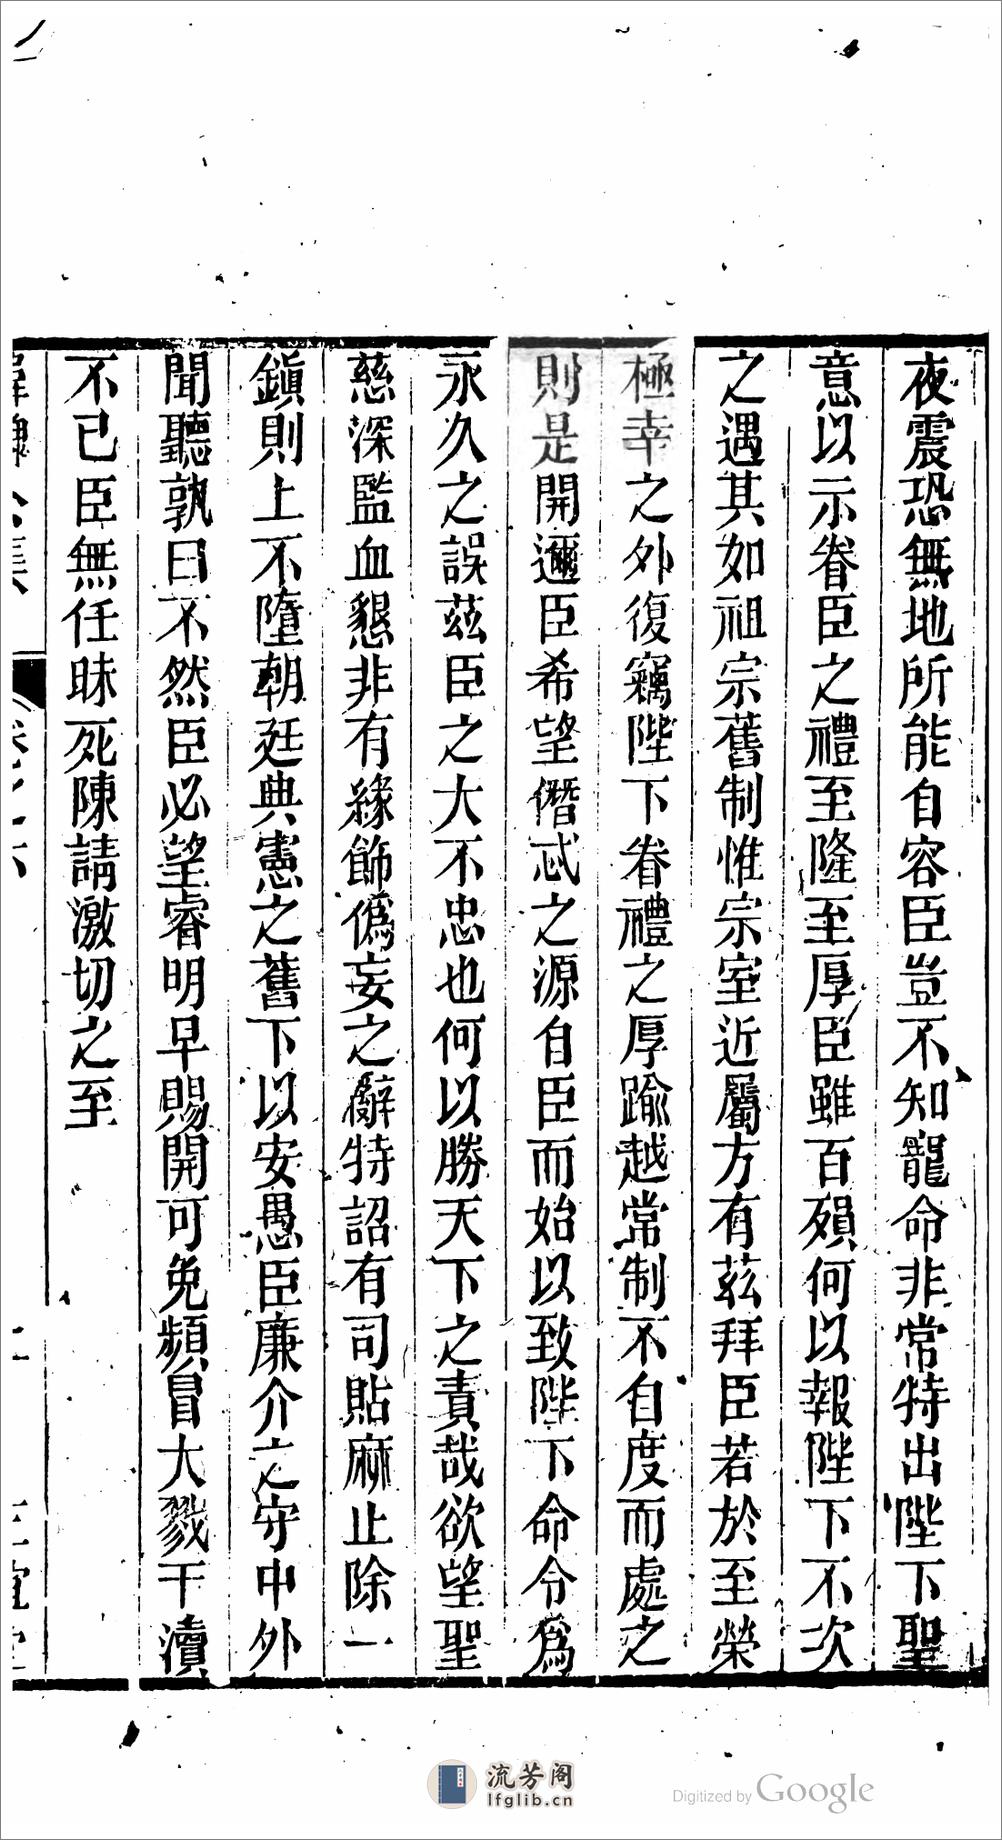 夜震恐無地所能自容臣豈不知寵命非常特出陛下聖
意以示眷臣之禮至隆至厚臣雖百殞何以報陛下不次
之遇其如祖宗舊制惟宗室近屬方有兹拜臣若於至榮
極幸之外復竊陛下眷禮之厚踰越常制不自度而處之
則是開邇臣希望僭忒之源自臣而始以致陛下命令爲
永久之誤茲臣之大不忠也何以勝天下之責哉欲望聖
慈深監血懇非有緣飾僞妄之辭特詔有司貼麻止除一
鎮則上不墮朝廷典憲之舊下以安愚臣廉介之守中外
聞聽孰曰不然臣必望睿明早賜開可免頻冒大戮干瀆
不已臣無任昧死陳請激切之至
流芳阁
lfglib.cn
Digitized by Google